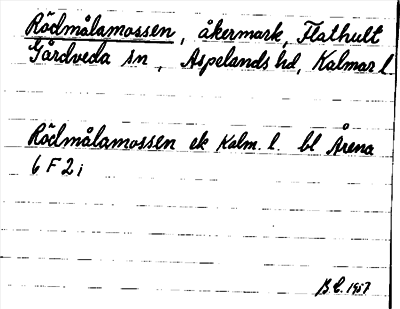 Rödmålamossen, åkermark, Flathult
Gårdveda sn, Aspelands hd, Kalmar l
Rödmålamossen ek Kalm. l. bl Årena
6 F 2 i
B E. 1957